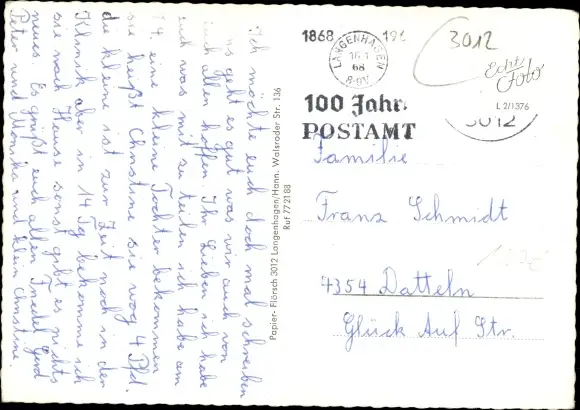 Ich möchte euch doch mal schreiben
uns geht es gut was wir auch von
euch allen hoffen. Ihr Lieben ich habe
euch was mit zu teilen ich habe am
1.4. eine kleine Tochter bekommen
sie heißt Christine sie wog 4 Pfd.
die kleine ist zur Zeit noch in der
Klinik aber in 14 Tg bekomme ich
sie nach Hause sonst gibt es nichts
neues. Es grüßt euch allen Friedel Gerd
Peter und Monika und klein Christine.
Papier-Flörsch 3012 Langenhagen/Hann. Walsroder Str. 136
Ruf 77 21 88
1868 196
LANGENHAGEN
68
100 Jahr
POSTAMT
3012
Echt
Foto
L 2/1376
3012
Familie
Franz Schmidt
4354 Datteln
Glück Auf Str.